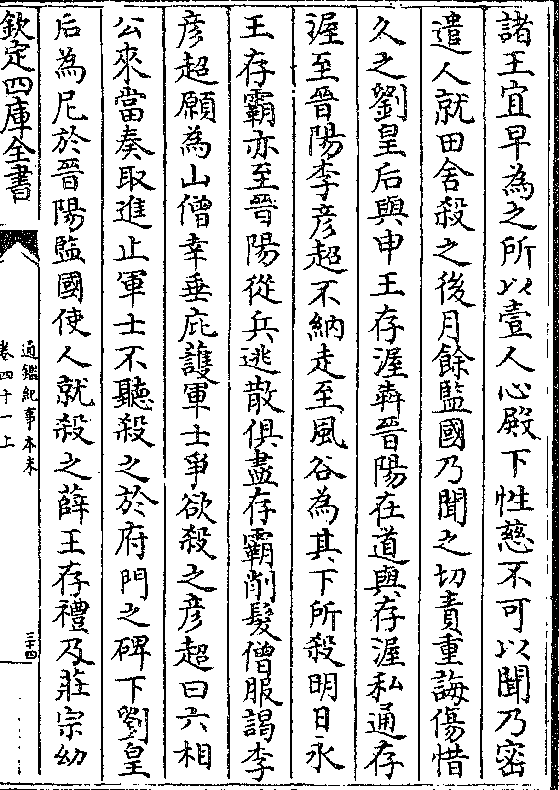 諸王宜早為之所以壹人心殿下性慈不可以聞乃密
遣人就田舍殺之後月餘監國乃聞之切責重誨傷惜
久之劉皇后與申王存渥犇晉陽在道與存渥私通存
渥至晉陽李彥超不納走至風谷為其下所殺明日永
王存霸亦至晉陽從兵逃散俱盡存霸削髮僧服謁李
彥超願為山僧幸垂庇護軍士爭欲殺之彥超曰六相
公來當奏取進止軍士不聽殺之於府門之碑下劉皇
后為尼於晉陽監國使人就殺之薛王存禮及莊宗幼
欽定四庫全書
通鑑紀事本末
卷四十一上
三十四